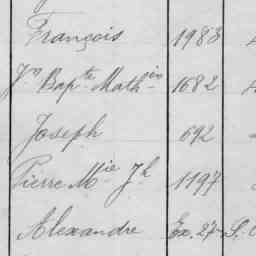 François 1983
Jn Bapte Mathin 1682
Joseph 692
Pierre Mie Jh 1197
Alexandre Ex. 27